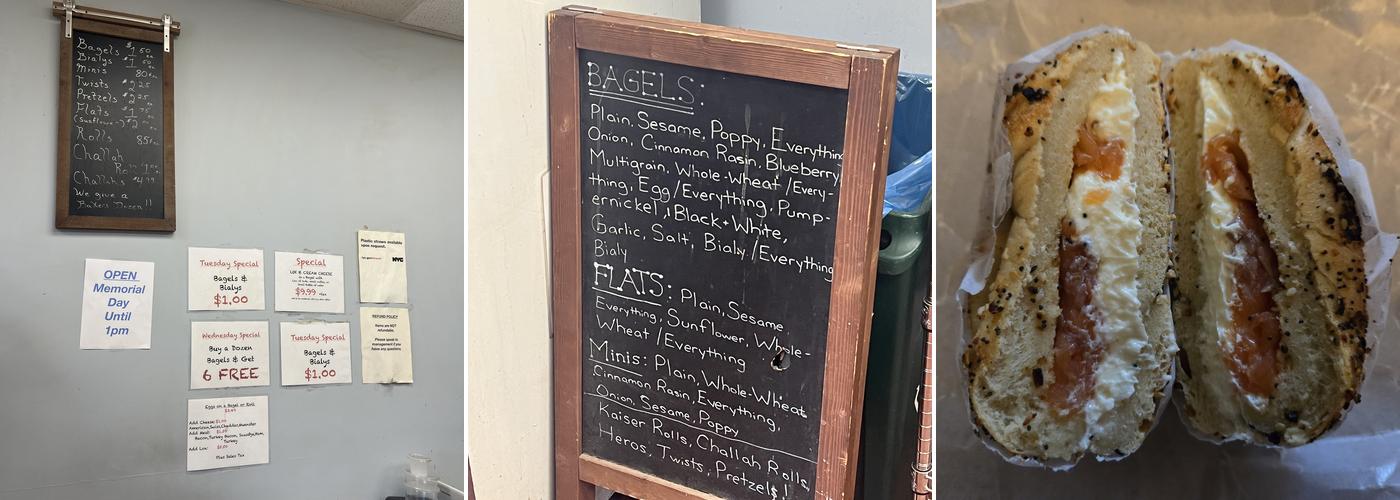 Bagels $1.50 ea
Bialys $1.50 ea
Minis 80¢ ea
Twists $2.25
Pretzels $2.25
Flats $1.75
(Sunflower)
Rolls 85¢ ea
Challah
Challahs $4.99
We give a
Bakers Dozen!!
OPEN
Memorial
Day
Until
1pm
Tuesday Special
Bagels &
Bialys
$1.00
Special
LOX & CREAM CHEESE
$9.99
Plastic straws available
upon request.
NYC
Wednesday Special
Buy a Dozen
Bagels & Get
6 FREE
Tuesday Special
Bagels &
Bialys
$1.00
REFUND POLICY
Items are NOT
refundable.
Please speak to
management if you
have any questions
Eggs on a Bagel or Roll
Add Cheese:
American,Swiss,Cheddar,Muenster
Add Meat:
Bacon,Turkey Bacon, Sausage,Ham,
Turkey
Add Lox:
Plus Sales Tax
BAGELS:
Plain, Sesame, Poppy, Everything
Onion, Cinnamon Rasin, Blueberry
Multigrain, Whole-Wheat /Every-
thing, Egg /Everything, Pump-
ernickel, Black+White,
Garlic, Salt, Bialy /Everything
Bialy
FLATS: Plain, Sesame,
Everything, Sunflower, Whole-
Wheat /Everything
Minis: Plain, Whole-Wheat
Cinnamon Rasin, Everything,
Onion, Sesame, Poppy
Kaiser Rolls, Challah Rolls,
Heros, Twists, Pretzels!